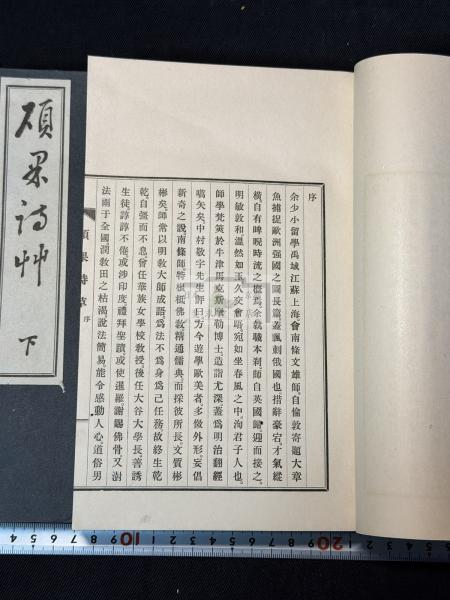 碩果詩艸
下
序
余少小留學禹域江蘇上海會南條文雄師自倫敦寄題大章
魚捕捉歐洲强國之圖長篇蓋諷刺俄國也措辭豪宕才氣縱
橫自有睥睨時流之概焉余就職本刹師自英國歸迎而接之
明敏敦和溫然如玉久交會晤宛如坐春風之中洵君子人也
師學梵筴於牛津馬克斯摩勒博士造詣尤深蓋爲明治翻經
嚆矢矣中村敬宇先生評曰方今遊學歐美者多倣外形妄倡
新奇之說南條師特根柢佛敎精通儒典而採彼所長文質彬
彬矣師常以明敎大師成語爲法不爲身爲己任務故終生乾
乾自强而不息曾任華族女學校敎授後任大谷大學長善誘
生徒諄諄不倦或涉印度禮拜聖蹟或使暹羅謝賜佛骨又澍
法雨于全國潤敎田之枯渴說法簡易能令感動人心道俗男
碩果詩草
序
10
20